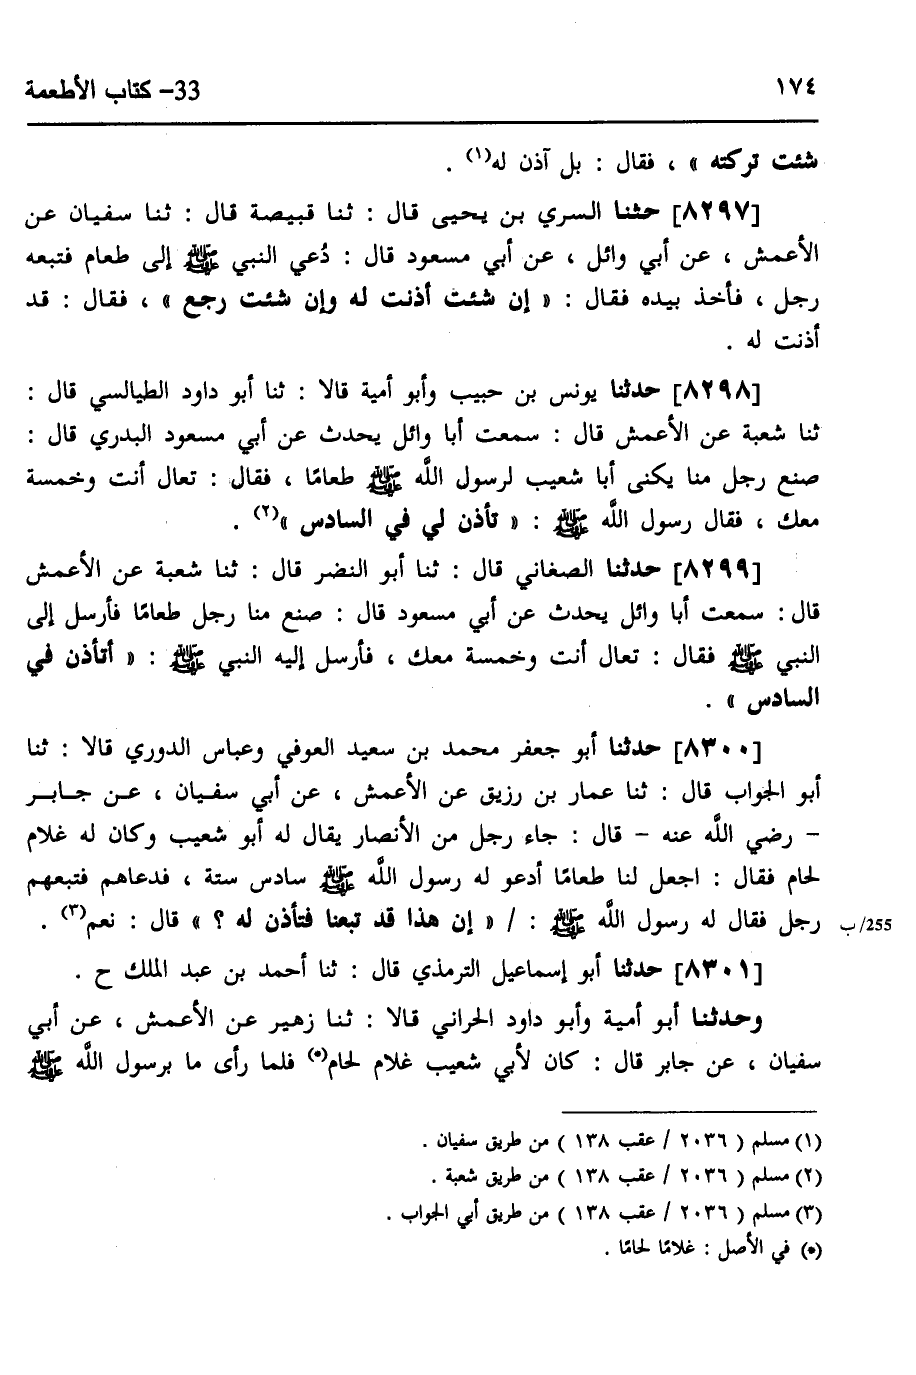 ١٧٤ 33- كتاب الأطعمة
شئت تركته » ، فقال : بل آذن له(١) .
[٨٢٩٧] حثنا السري بن يحيى قال : ثنا قبيصة قال : ثنا سفيان عن
الأعمش ، عن أبي وائل ، عن أبي مسعود قال : دُعي النبي ﷺ إلى طعام فتبعه
رجل ، فأخذ بيده فقال : « إن شئت أذنت له وإن شئت رجع » ، فقال : قد
أذنت له .
[٨٢٩٨] حدثنا يونس بن حبيب وأبو أمية قالا : ثنا أبو داود الطيالسي قال :
ثنا شعبة عن الأعمش قال : سمعت أبا وائل يحدث عن أبي مسعود البدري قال :
صنع رجل منا يكنى أبا شعيب لرسول اللَّه ﷺ طعامًا ، فقال : تعال أنت وخمسة
معك ، فقال رسول اللَّه ﷺ : « تأذن لي في السادس »(٢) .
[٨٢٩٩] حدثنا الصغاني قال : ثنا أبو النضر قال : ثنا شعبة عن الأعمش
قال : سمعت أبا وائل يحدث عن أبي مسعود قال : صنع منا رجل طعامًا فأرسل إلى
النبي ﷺ فقال : تعال أنت وخمسة معك ، فأرسل إليه النبي ﷺ : « أتأذن في
السادس » .
[٨٣٠٠] حدثنا أبو جعفر محمد بن سعيد العوفي وعباس الدوري قالا : ثنا
أبو الجواب قال : ثنا عمار بن رزيق عن الأعمش ، عن أبي سفيان ، عن جابر
- رضي اللَّه عنه - قال : جاء رجل من الأنصار يقال له أبو شعيب وكان له غلام
لحام فقال : اجعل لنا طعامًا أدعو له رسول اللَّه ﷺ سادس ستة ، فدعاهم فتبعهم
رجل فقال له رسول اللَّه ﷺ : / « إن هذا قد تبعنا فتأذن له ؟ » قال : نعم(٣) .
255/ب
[٨٣٠١] حدثنا أبو إسماعيل الترمذي قال : ثنا أحمد بن عبد الملك ح .
وحدثنا أبو أمية وأبو داود الحراني قالا : ثنا زهير عن الأعمش ، عن أبي
سفيان ، عن جابر قال : كان لأبي شعيب غلام لحام(*) فلما رأى ما برسول اللَّه ﷺ
(١) مسلم ( ٢٠٣٦ / عقب ١٣٨ ) من طريق سفيان .
(٢) مسلم ( ٢٠٣٦ / عقب ١٣٨ ) من طريق شعبة .
(٣) مسلم ( ٢٠٣٦ / عقب ١٣٨ ) من طريق أبي الجواب .
(*) في الأصل : غلامًا لحامًا .